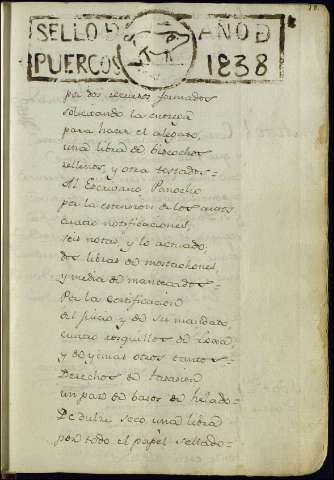 18.
SELLO D AÑO D
PUERCOS 1838
por dos recursos formados
solicitando la entrega
para hacer el alegato,
una libra de bizcochos
rellenos, y otra tostados=
Al Escribano Panocho
por la estension de los autos
cuatro notificaciones,
seis notas, y lo actuado,
dos libras de mostachones,
y media de mantecados=
Por la certificacion
del juicio, y de su mandato,
cuatro rosquillos de
y de yemas otros tantos=
Derechos de tasacion
un par de basos de helado=
De dulze seco una libra
por todo el papel sellado=